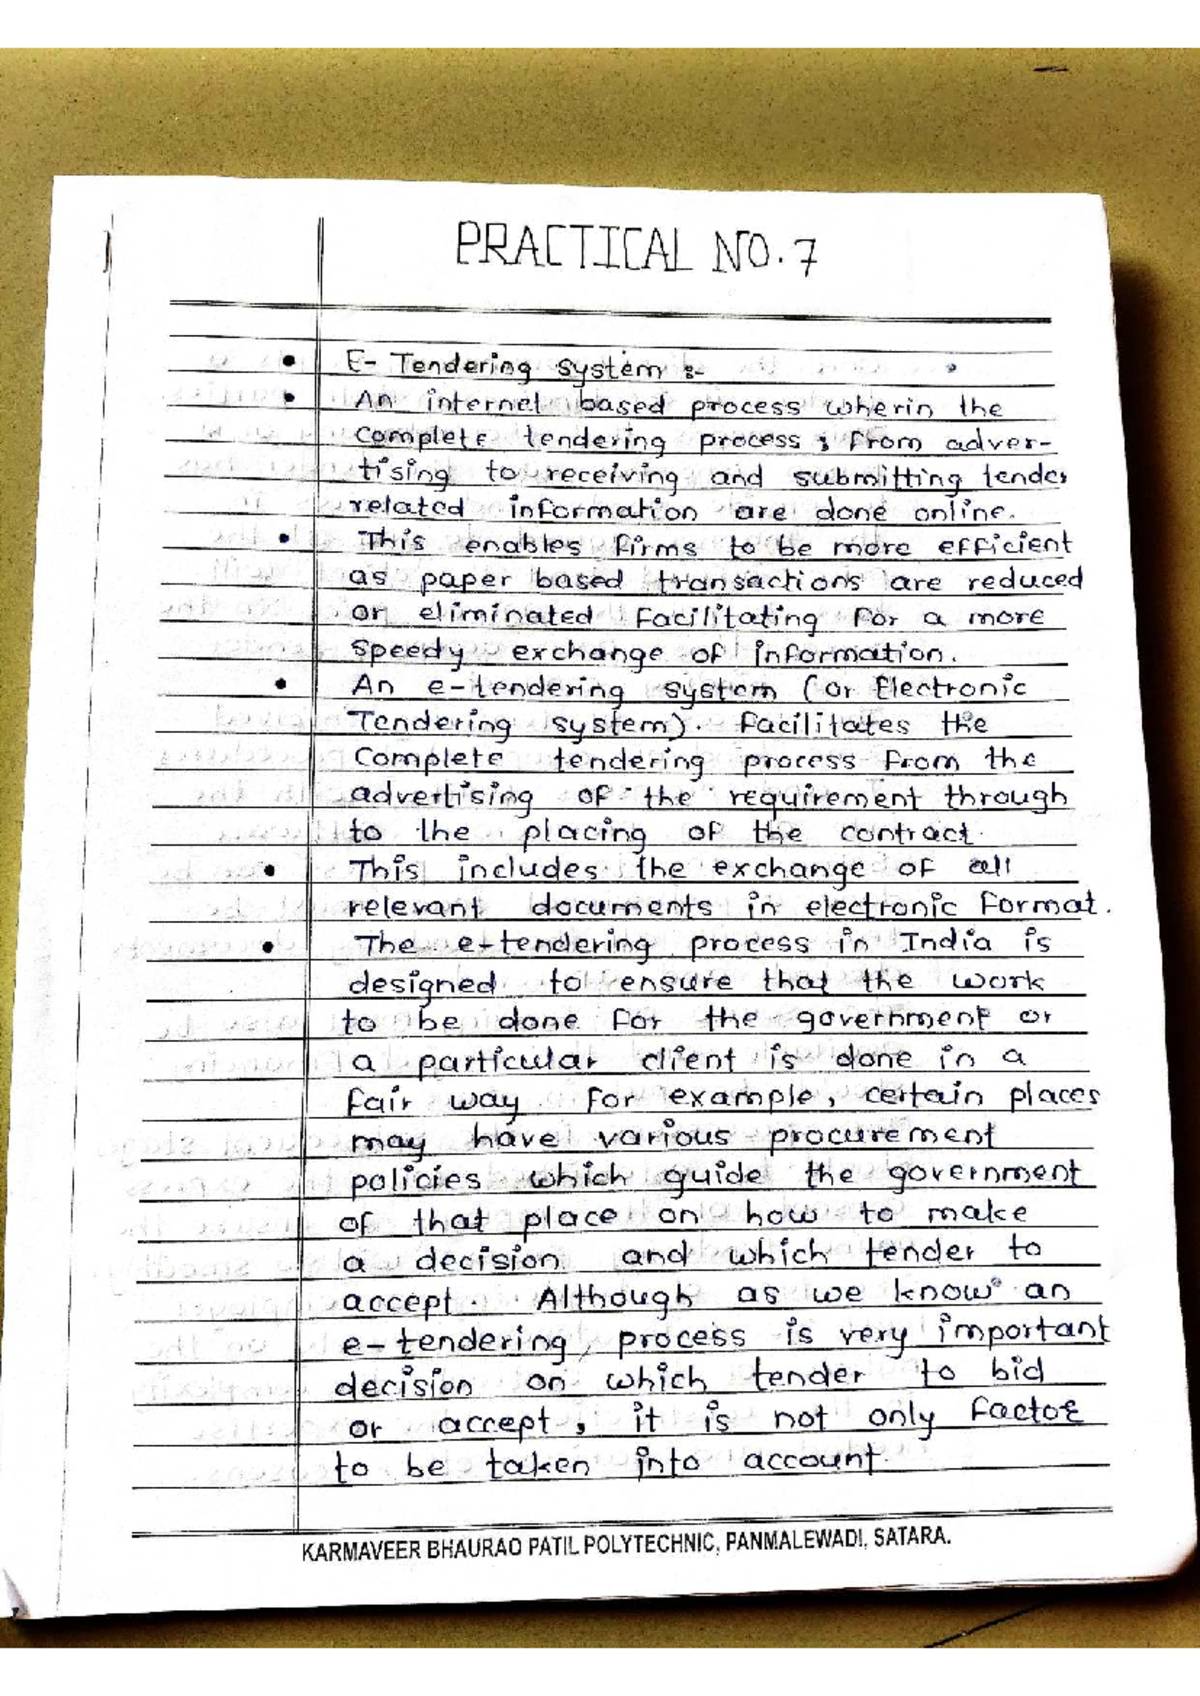 PRACTICAL NO. 7
• E- Tendering system :-
• An internet based process wherin the
complete tendering process ; from adver-
tising to receiving and submitting tender
related information are done online.
• This enables firms to be more efficient
as paper based transactions are reduced
or eliminated facilitating for a more
speedy exchange of information.
• An e-tendering system (or Electronic
Tendering system). facilitates the
complete tendering process from the
advertising of the requirement through
to the placing of the contract.
• This includes the exchange of all
relevant documents in electronic format.
• The e-tendering process in India is
designed to ensure that the work
to be done for the government or
a particular client is done in a
fair way for example, certain places
may have various procurement
policies which guide the government
of that place on how to make
a decision and which tender to
accept. Although as we know an
e-tendering, process is very important
decision on which tender to bid
or accept, it is not only factor
to be taken into account.
KARMAVEER BHAURAO PATIL POLYTECHNIC, PANMALEWADI, SATARA.